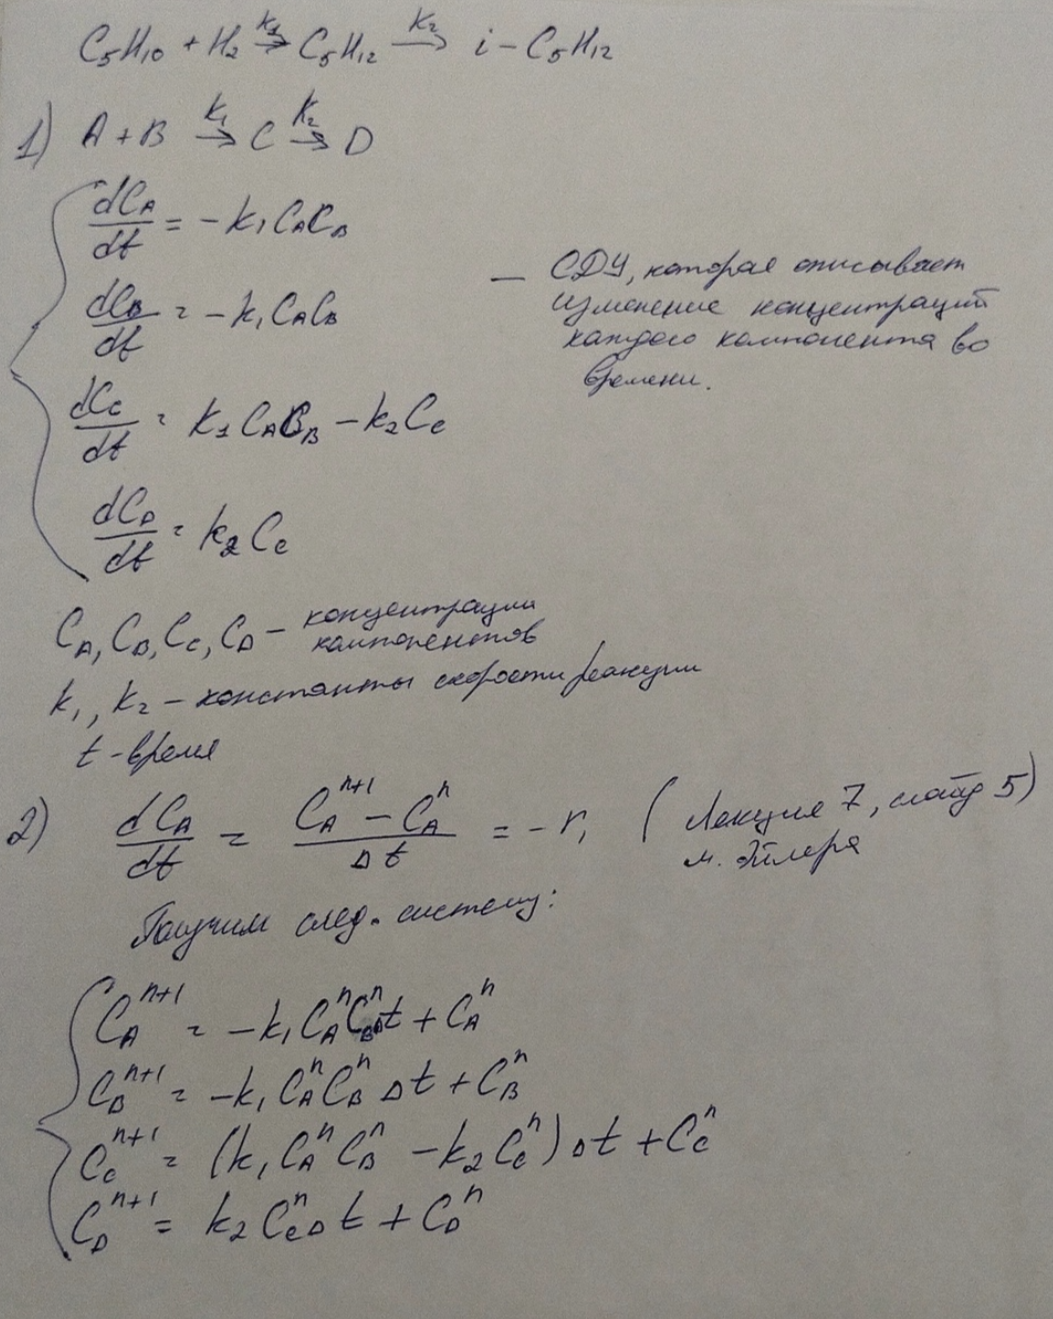 C₅H₁₀ + H₂ →(k₁) C₅H₁₂ →(k₂) i - C₅H₁₂
1) A + B →(k₁) C →(k₂) D
dC_A/dt = -k₁C_AC_B
dC_B/dt = -k₁C_AC_B
— СДУ, которая описывает
изменение концентраций
каждого компонента во
времени.
dC_C/dt = k₁C_AC_B - k₂C_C
dC_D/dt = k₂C_C
C_A, C_B, C_C, C_D - концентрации
компонентов
k₁, k₂ - константы скорости реакции
t - время
2) dC_A/dt = (C_A^{n+1} - C_A^n)/Δt = -r₁ (Лекция 7, слайд 5)
м. Эйлера
Получим след. систему:
C_A^{n+1} = -k₁C_A^nC_B^nΔt + C_A^n
C_B^{n+1} = -k₁C_A^nC_B^nΔt + C_B^n
C_C^{n+1} = (k₁C_A^nC_B^n - k₂C_C^n)Δt + C_C^n
C_D^{n+1} = k₂C_C^nΔt + C_D^n